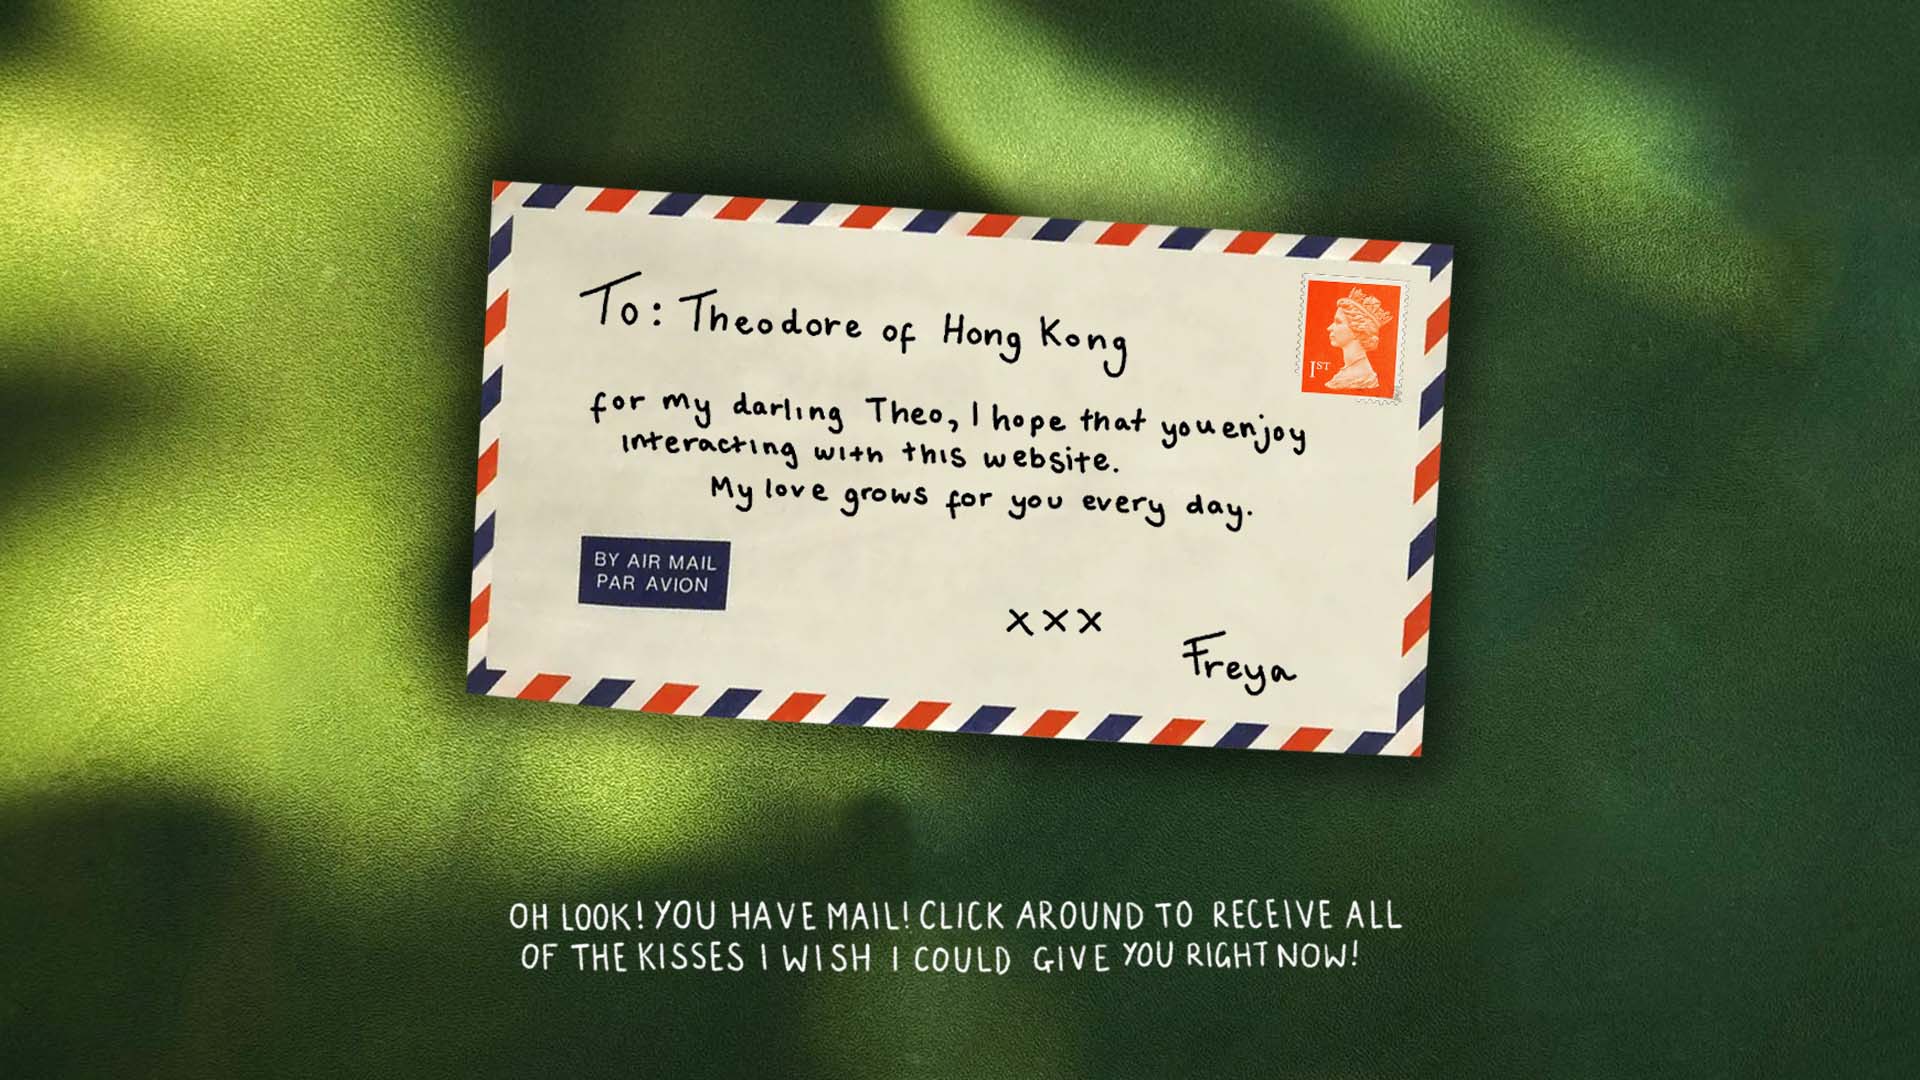 To: Theodore of Hong Kong
1ST
for my darling Theo, I hope that you enjoy
interacting with this website.
My love grows for you every day.
BY AIR MAIL
PAR AVION
xxx
Freya
OH LOOK! YOU HAVE MAIL! CLICK AROUND TO RECEIVE ALL
OF THE KISSES I WISH I COULD GIVE YOU RIGHT NOW!